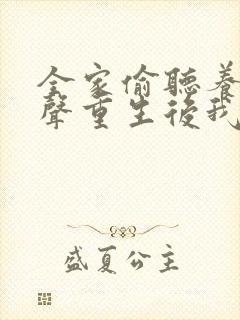 全家偷聽養
聲重生後我
盛夏公主